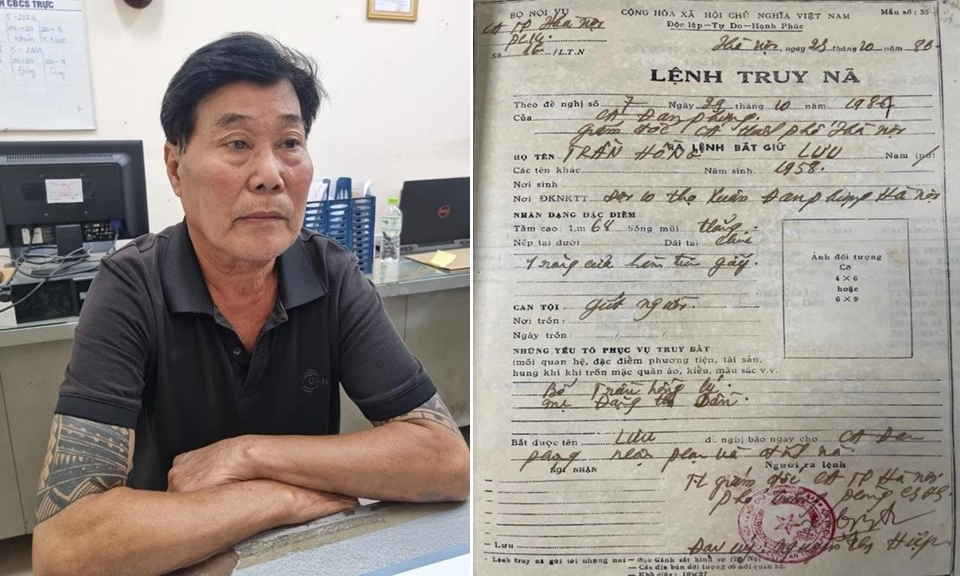 CH CBCS TRỰC
DELL
BỘ NỘI VỤ
CA TP Hà Nội
PC14
Số 16 /L.T.N
CỘNG HÒA XÃ HỘI CHỦ NGHĨA VIỆT NAM
Độc lập - Tự Do - Hạnh Phúc
Mẫu số: 35
Hà Nội, ngày 29 tháng 10 năm 86
LỆNH TRUY NÃ
Theo đề nghị số 7 Ngày 29 tháng 10 năm 1986
Của CA Đan Phượng
giám đốc CA thành phố Hà Nội
RA LỆNH BẮT GIỮ
HỌ TÊN TRẦN HỒNG LƯU Nam (nữ)
Các tên khác Năm sinh 1958
Nơi sinh
Nơi ĐKNKTT Đội 10 Thọ Xuân Đan Phượng Hà Nội
NHÂN DẠNG ĐẶC ĐIỂM
Tầm cao 1m 68 Sống mũi thẳng
Nếp tai dưới Dái tai chúc
1 răng cửa hàm trên gãy
Ảnh đối tượng
Cỡ
4 × 6
hoặc
6 × 9
CAN TỘI: giết người
Nơi trốn:
Ngày trốn:
NHỮNG YẾU TỐ PHỤC VỤ TRUY BẮT
(mối quan hệ, đặc điểm phương tiện, tài sản,
hung khí khi trốn mặc quần áo, kiểu, màu sắc v.v.
Bố Trần Hồng
mẹ Đặng thị Dần
Bắt được tên LƯU đ. nghị báo ngay cho CA Đan
NƠI NHẬN
Người ra lệnh
TL giám đốc CA TP Hà Nội
phó phòng CSHS
Đại úy Nguyễn Hiệp
Lưu
Lệnh truy nã gửi tới những nơi - Cục Cảnh sát hình sự (Bộ Nội
- Các địa bàn đối tượng có mối quan hệ.
- Khổ giấy: 19×27